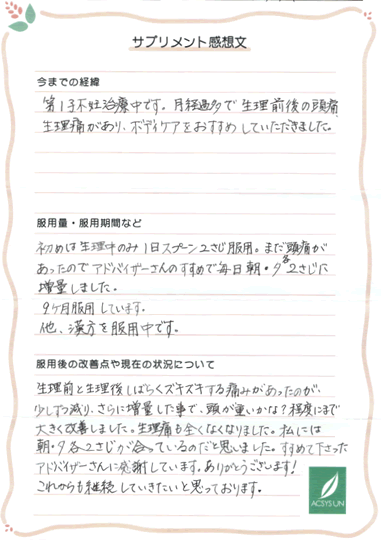 サプリメント感想文
今までの経緯
第1子不妊治療中です。月経過多で生理前後の頭痛、
生理痛があり、ボディケアをおすすめしていただきました。
服用量・服用期間など
初めは生理中のみ1日スプーン2さじ服用。まだ頭痛が
あったのでアドバイザーさんのすすめで毎日朝・夕各2さじに
増量しました。
9ヶ月服用しています。
他、漢方を服用中です。
服用後の改善点や現在の状況について
生理前と生理後しばらくズキズキする痛みがあったのが、
少しずつ減り、さらに増量した事で、頭が重いかな?程度にまで
大きく改善しました。生理痛も全くなくなりました。私には
朝・夕各2さじが合っているのだと思いました。すすめて下さった
アドバイザーさんに感謝しています。ありがとうございます!
これからも継続していきたいと思っております。
ACSYS UN